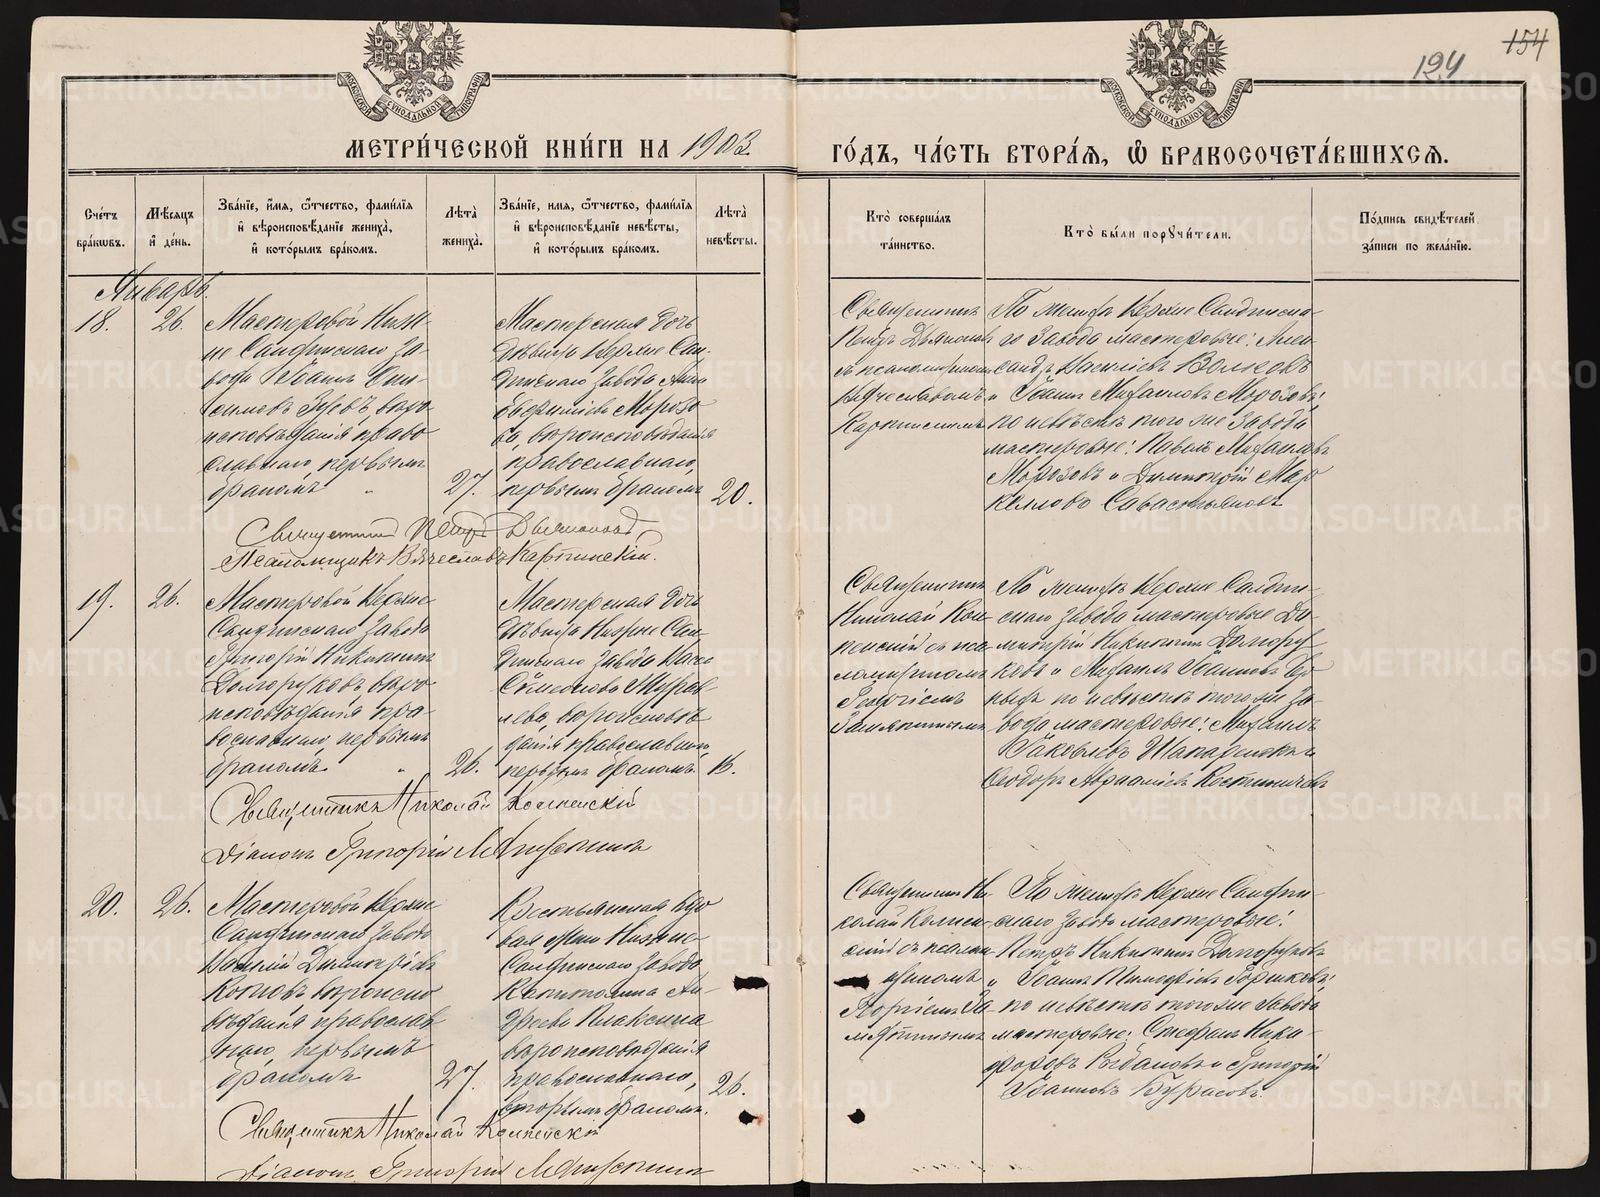 154
124
МОСКОВСКОЙ СѴНОДАЛЬНОЙ ТИПОГРАФІИ
МОСКОВСКОЙ СѴНОДАЛЬНОЙ ТИПОГРАФІИ
МЕТРИ́ЧЕСКОЙ КНИ́ГИ НА 1903
ГО́ДЪ, ЧА́СТЬ ВТОРА́Я, Ѡ БРАКОСОЧЕТА́ВШИХСЯ.
Сче́тъ
бра́кѡвъ.
Мѣ́сяцъ
и де́нь.
Зва́нїе, и́мя, ѻ́тчество, фами́лїя
и вѣроисповѣ́данїе жениха̀,
и кото́рымъ бра́комъ.
Лѣта̀
жениха̀.
Зва́нїе, имя, ѻ́тчество, фами́лїя
и вѣроисповѣ́данїе невѣ́сты,
и кото́рымъ бра́комъ.
Лѣта̀
невѣ́сты.
Кто̀ соверша́лъ
та́инство.
Кто̀ бы́ли порꙋчи́тели.
По́дпись свидѣ́телей
за́писи по жела́нїю.
Январь.
18.
26.
Мастеровой Ниж-
не Салдинскаго за-
вода Іоаннъ Они-
симовъ вѣро-
исповѣданія право
славнаго, первымъ
бракомъ
27.
Мастерская дочь
дѣвица Верхне Сал-
динскаго завода Анна
Морозо
ва, вѣроисповѣданія
православнаго,
первымъ бракомъ
20.
Священникъ
Петръ Дьяконовъ
съ псаломщикомъ
Вячеславомъ
Карпинскимъ
По женихѣ Верхне Салдинска-
го завода мастеровые: Алек-
сандръ Василіевъ Волковъ
и Іоаннъ Михаиловъ Морозовъ;
по невѣстѣ того же завода
мастеровые: Павелъ Михаиловъ
Морозовъ и Димитрій Мар
келловъ Савастьяновъ
Священникъ Петръ Дьяконовъ,
Псаломщикъ Вячеславъ Карпинскій.
19.
26.
Мастеровой Верхне
Салдинскаго завода
Григорій Никитинъ
Долгоруковъ вѣро-
исповѣданія пра-
вославнаго первымъ
бракомъ
26.
Мастерская дочь
дѣвица Нижне Сал-
динскаго завода
лева, вѣроисповѣ-
данія православнаго
первымъ бракомъ.
16.
Священникъ
Николай Кол-
пенскій съ пса-
ломщикомъ
Георгіемъ
Замятинымъ
По женихѣ Верхне Салдин-
скаго завода мастеровые Ди-
митрій Никитинъ Долгору-
ковъ и Михаилъ Іоанновъ
по невѣстѣ того же за-
вода мастеровые: Михаилъ
Іаковлевъ
Ѳеодоръ
Священникъ Николай Колпенскій
Діаконъ Григорій
20.
26.
Мастеровой Верхне
Салдинскаго завода
Василій Димитріевъ
вѣроиспо
вѣданія православ
наго, первымъ
бракомъ
27.
Крестьянская вдо
вая жена Нижне-
Салдинскаго завода
Капитолина Ан-
дреева Плаксина
вѣроисповѣданія
православнаго,
вторымъ бракомъ.
26.
Священникъ Ни
колай Колпен-
скій съ псалом-
щикомъ
Георгіемъ За
мятинымъ
По женихѣ Верхне Салдин-
скаго завода мастеровые:
Петръ Никитинъ Долгоруковъ
и Іоаннъ Тимофеевъ
по невѣстѣ того же завода
мастеровые: Стефанъ Ники-
форовъ и Григорій
Іоанновъ Бурасовъ.
Священникъ Николай Колпенскій
Діаконъ Григорій
METRIKI.GASO-URAL.RU